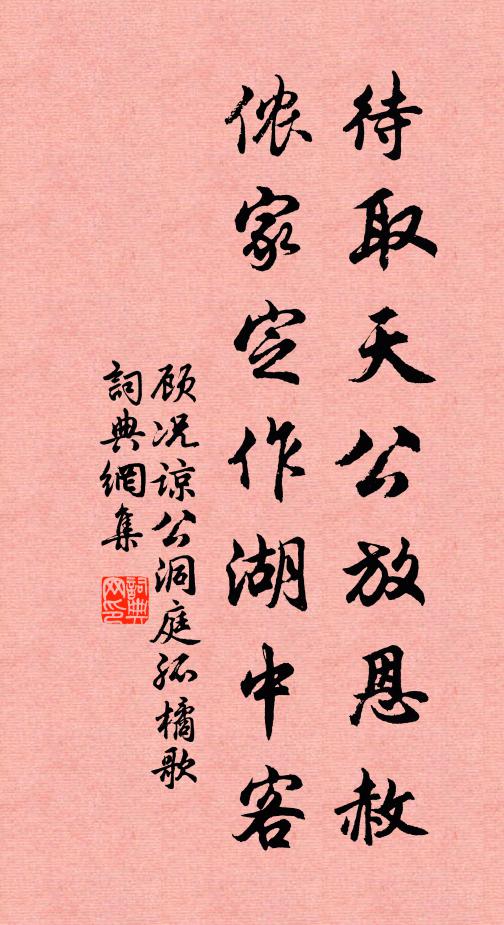 待取天公放恩赦
侬家定作湖中客
顾况谅公洞庭孤橘歌
詞典網集
詞典网印